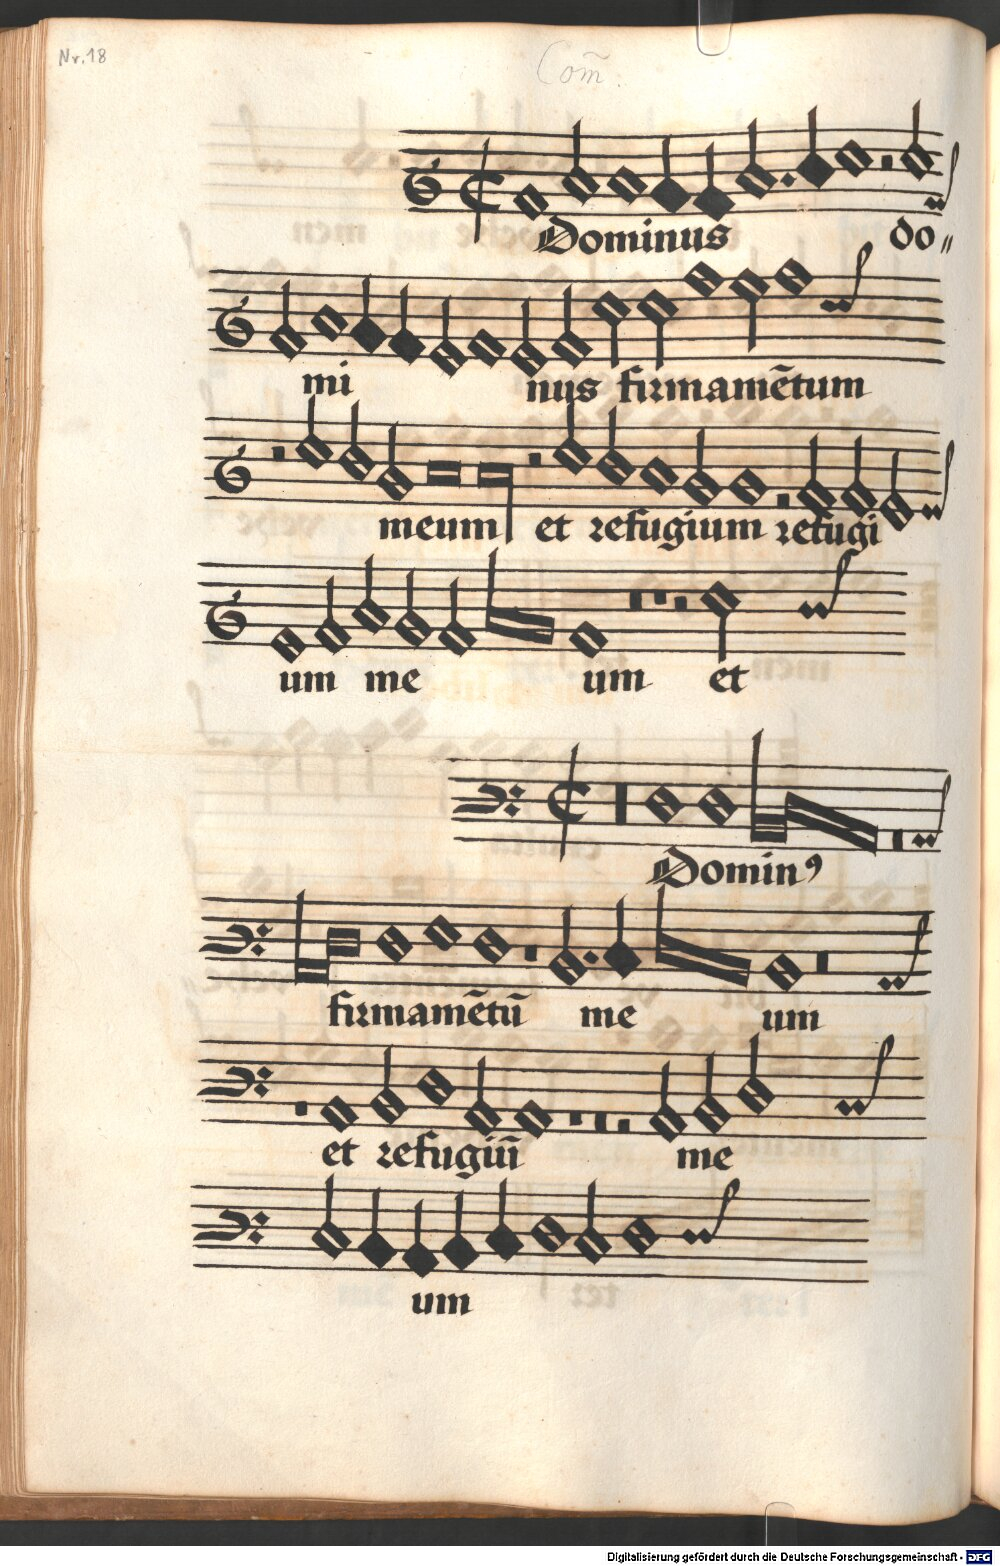 Nr. 18
Com̄
Dominus do„
mi nus firmamētum
meum et refugium refugi
um me um et
Dominꝰ
firmamētū me um
et refugiū me
um
Digitalisierung gefördert durch die Deutsche Forschungsgemeinschaft - DFG